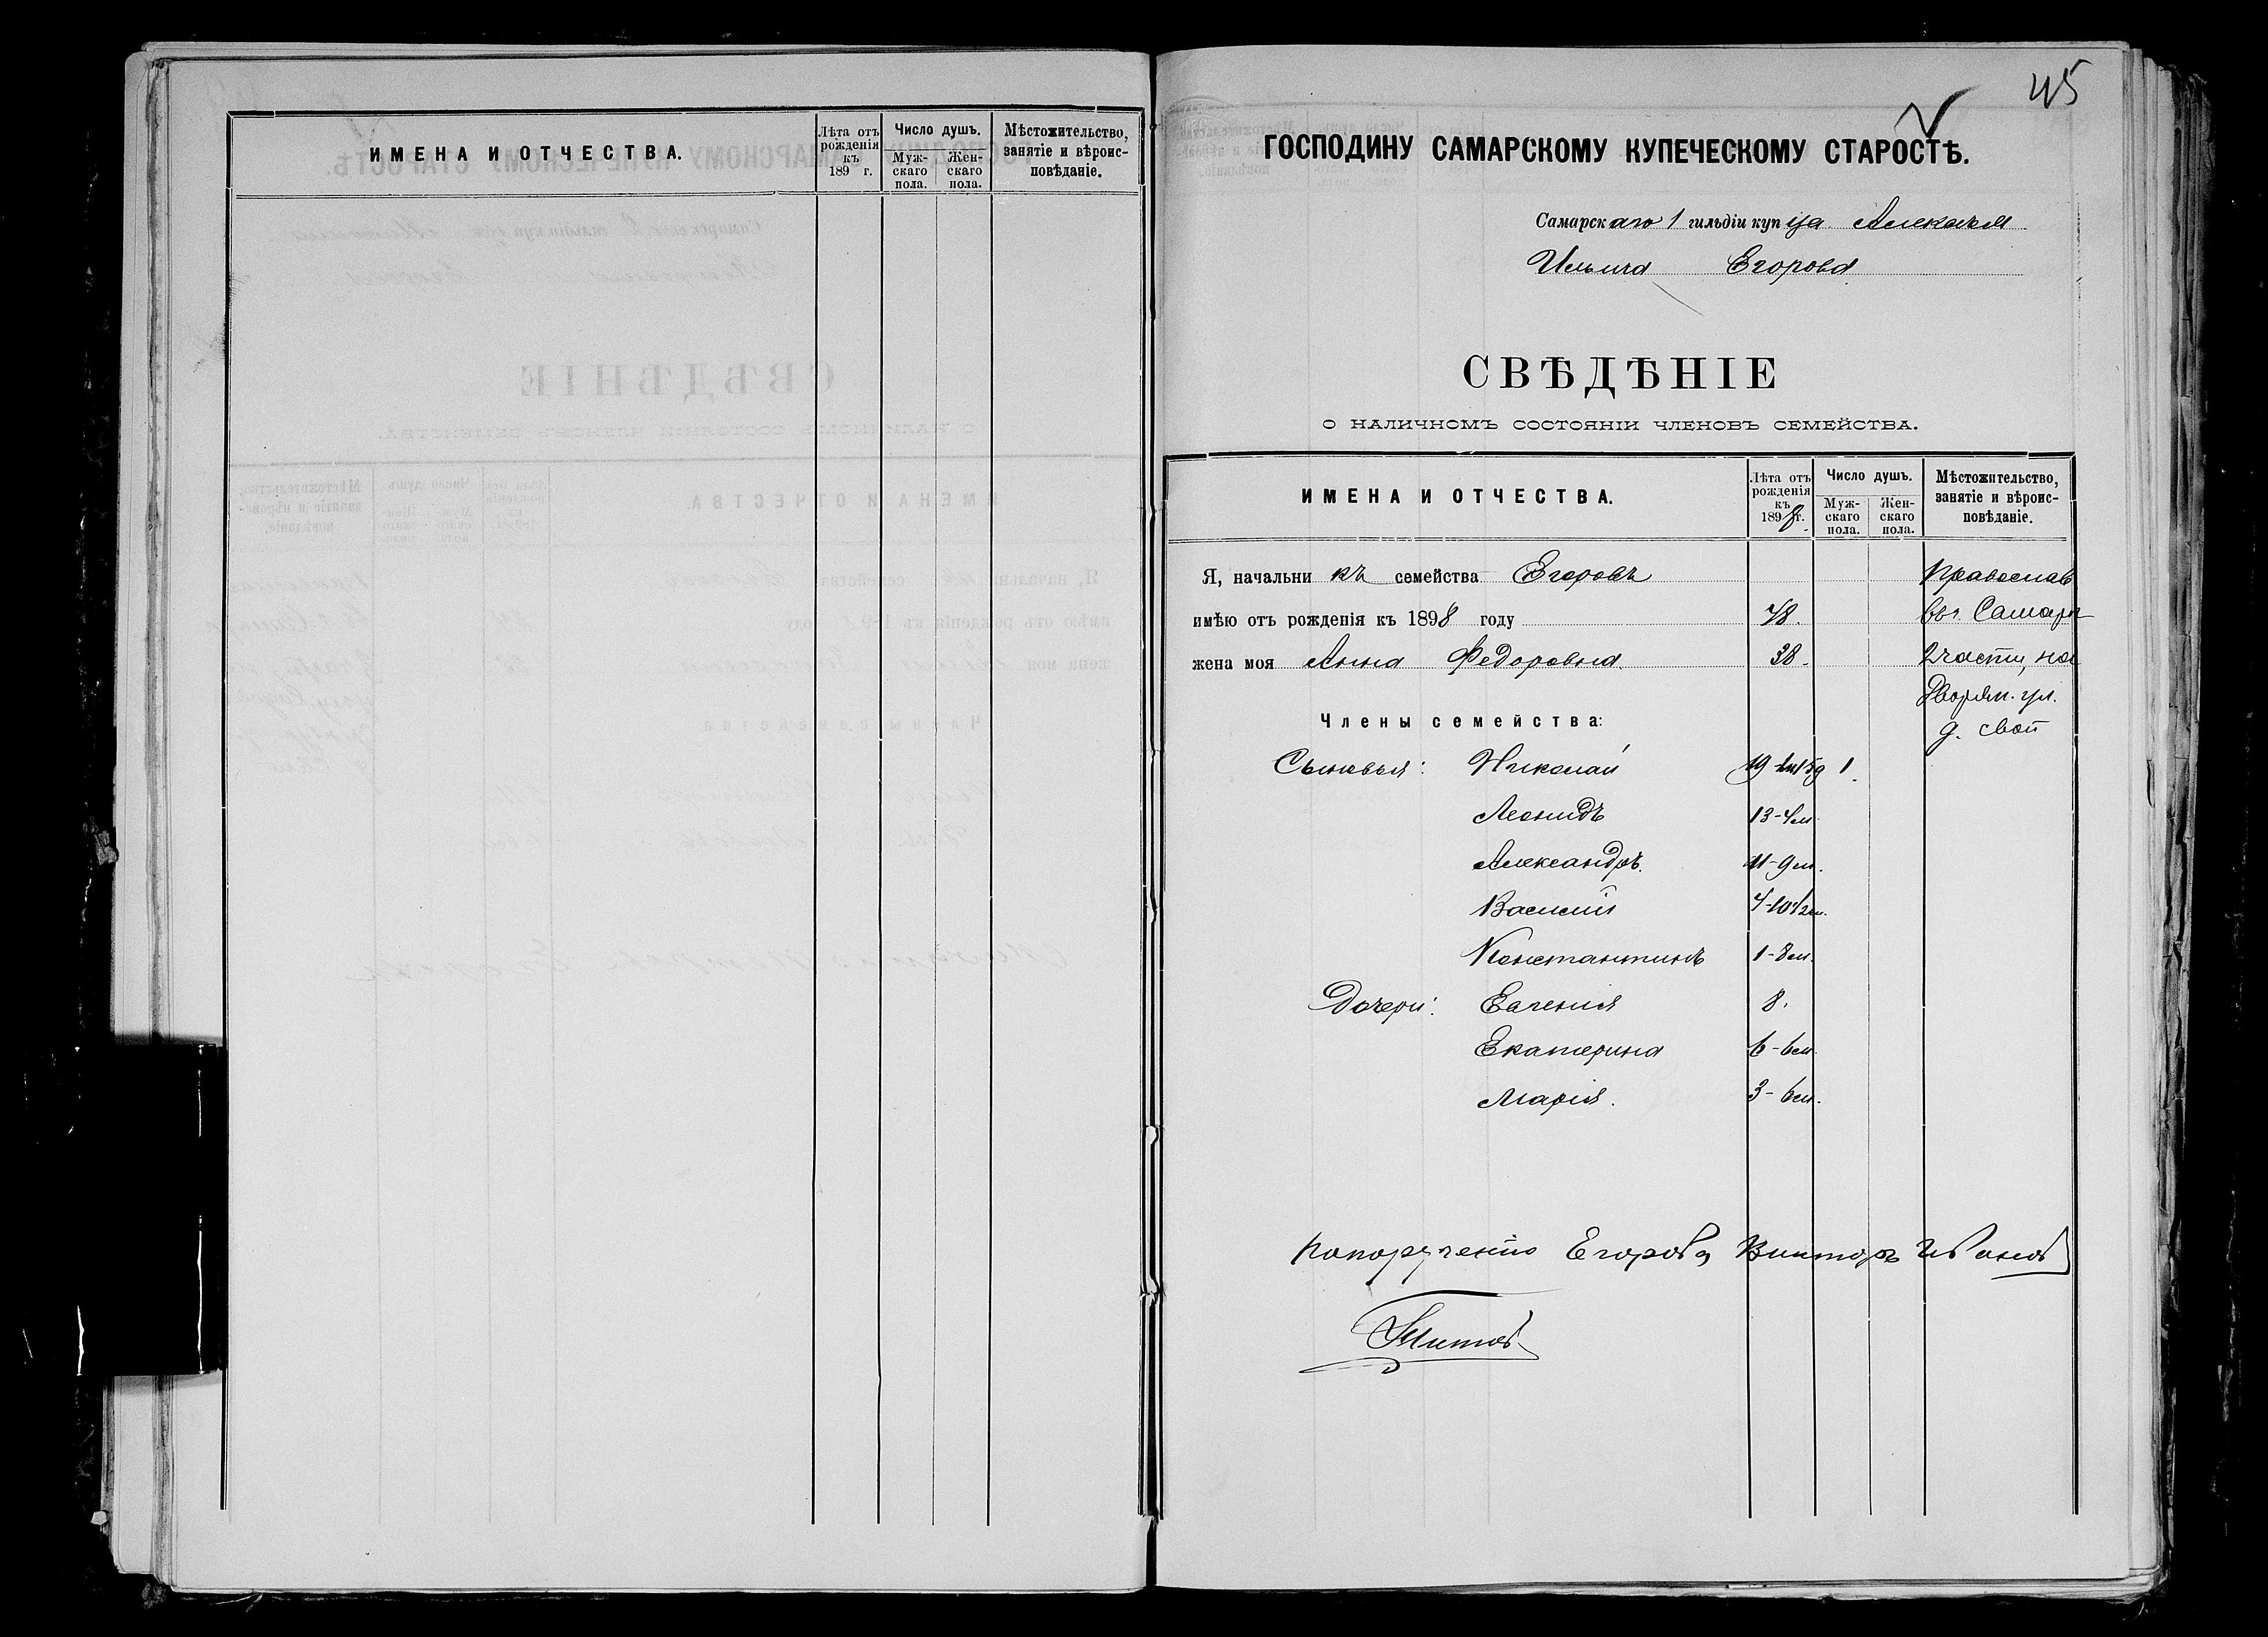 ИМЕНА И ОТЧЕСТВА.
Лѣта отъ рожденія къ 189 г.
Число душъ.
Мужскаго пола.
Женскаго пола.
Мѣстожительство, занятіе и вѣроисповѣданіе.
45
ГОСПОДИНУ САМАРСКОМУ КУПЕЧЕСКОМУ СТАРОСТѢ.
Самарскаго 1 гильдіи купца Алексѣя
Ильича Егорова
СВѢДѢНІЕ
О НАЛИЧНОМЪ СОСТОЯНІИ ЧЛЕНОВЪ СЕМЕЙСТВА.
ИМЕНА И ОТЧЕСТВА.
Лѣта отъ рожденія къ 1898 г.
Число душъ.
Мужскаго пола.
Женскаго пола.
Мѣстожительство, занятіе и вѣроисповѣданіе.
Я, начальникъ семейства Егоровъ Православ
имѣю отъ рожденія къ 1898 году 48. въ г. Самарѣ
жена моя Анна Федоровна 38. 2 части, на
Дворян. ул.
Члены семейства: д. свой
Сыновья: Николай 19 1
Леонидъ 13-4м
Александръ. 11-9м.
Василій 4-10 1/2м.
Константинъ 1-8м.
Дочери: Евгенія 8.
Екатерина 6-6м
Марія. 3-6м.
По порученію Егорова Викторъ Ивановъ
Титовъ